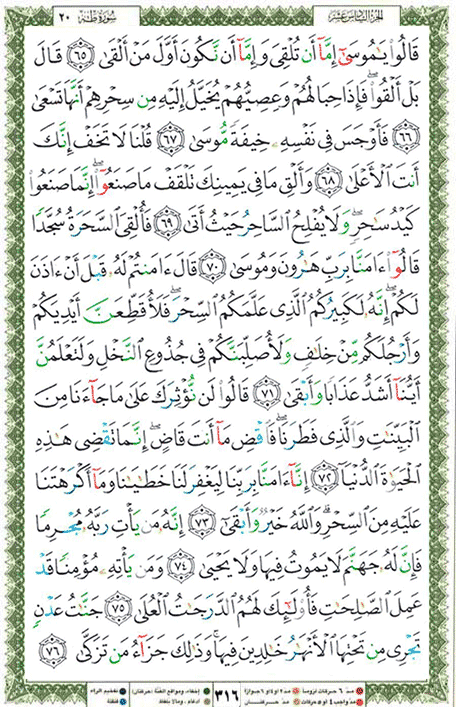 الجزء السادس عشر سورة طه ٢٠
قَالُوا۟ يَٰمُوسَىٰٓ إِمَّآ أَن تُلْقِىَ وَإِمَّآ أَن نَّكُونَ أَوَّلَ مَنْ أَلْقَىٰ ٦٥ قَالَ
بَلْ أَلْقُوا۟ ۖ فَإِذَا حِبَالُهُمْ وَعِصِيُّهُمْ يُخَيَّلُ إِلَيْهِ مِن سِحْرِهِمْ أَنَّهَا تَسْعَىٰ
٦٦ فَأَوْجَسَ فِى نَفْسِهِۦ خِيفَةً مُّوسَىٰ ٦٧ قُلْنَا لَا تَخَفْ إِنَّكَ
أَنتَ ٱلْأَعْلَىٰ ٦٨ وَأَلْقِ مَا فِى يَمِينِكَ تَلْقَفْ مَا صَنَعُوٓا۟ ۖ إِنَّمَا صَنَعُوا۟
كَيْدُ سَٰحِرٍ ۖ وَلَا يُفْلِحُ ٱلسَّاحِرُ حَيْثُ أَتَىٰ ٦٩ فَأُلْقِىَ ٱلسَّحَرَةُ سُجَّدًا
قَالُوٓا۟ ءَامَنَّا بِرَبِّ هَٰرُونَ وَمُوسَىٰ ٧٠ قَالَ ءَامَنتُمْ لَهُۥ قَبْلَ أَنْ ءَاذَنَ
لَكُمْ ۖ إِنَّهُۥ لَكَبِيرُكُمُ ٱلَّذِى عَلَّمَكُمُ ٱلسِّحْرَ ۖ فَلَأُقَطِّعَنَّ أَيْدِيَكُمْ
وَأَرْجُلَكُم مِّنْ خِلَٰفٍ وَلَأُصَلِّبَنَّكُمْ فِى جُذُوعِ ٱلنَّخْلِ وَلَتَعْلَمُنَّ
أَيُّنَآ أَشَدُّ عَذَابًا وَأَبْقَىٰ ٧١ قَالُوا۟ لَن نُّؤْثِرَكَ عَلَىٰ مَا جَآءَنَا مِنَ
ٱلْبَيِّنَٰتِ وَٱلَّذِى فَطَرَنَا ۖ فَٱقْضِ مَآ أَنتَ قَاضٍ ۖ إِنَّمَا تَقْضِى هَٰذِهِ
ٱلْحَيَوٰةَ ٱلدُّنْيَآ ٧٢ إِنَّآ ءَامَنَّا بِرَبِّنَا لِيَغْفِرَ لَنَا خَطَٰيَٰنَا وَمَآ أَكْرَهْتَنَا
عَلَيْهِ مِنَ ٱلسِّحْرِ ۗ وَٱللَّهُ خَيْرٌ وَأَبْقَىٰٓ ٧٣ إِنَّهُۥ مَن يَأْتِ رَبَّهُۥ مُجْرِمًا
فَإِنَّ لَهُۥ جَهَنَّمَ لَا يَمُوتُ فِيهَا وَلَا يَحْيَىٰ ٧٤ وَمَن يَأْتِهِۦ مُؤْمِنًا قَدْ
عَمِلَ ٱلصَّٰلِحَٰتِ فَأُو۟لَٰٓئِكَ لَهُمُ ٱلدَّرَجَٰتُ ٱلْعُلَىٰ ٧٥ جَنَّٰتُ عَدْنٍ
تَجْرِى مِن تَحْتِهَا ٱلْأَنْهَٰرُ خَٰلِدِينَ فِيهَا ۚ وَذَٰلِكَ جَزَآءُ مَن تَزَكَّىٰ ٧٦
مدّ ٦ حركات لزوماً مدّ ٢ أو ٤ أو ٦ جوازاً ٣١٦ إخفاء، ومواقع الغنّة (حركتان) تفخيم الراء
مدّ واجب ٤ أو ٥ حركات مدّ حركتان إدغام، وما لا يلفظ قلقلة